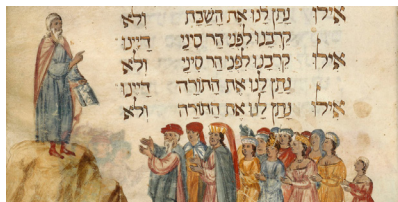 אילו נתן לנו את השבת ולא
קרבנו לפני הר סיני דיינו
אילו קרבנו לפני הר סיני ולא
נתן לנו את התורה דיינו
אילו נתן לנו את התורה ולא